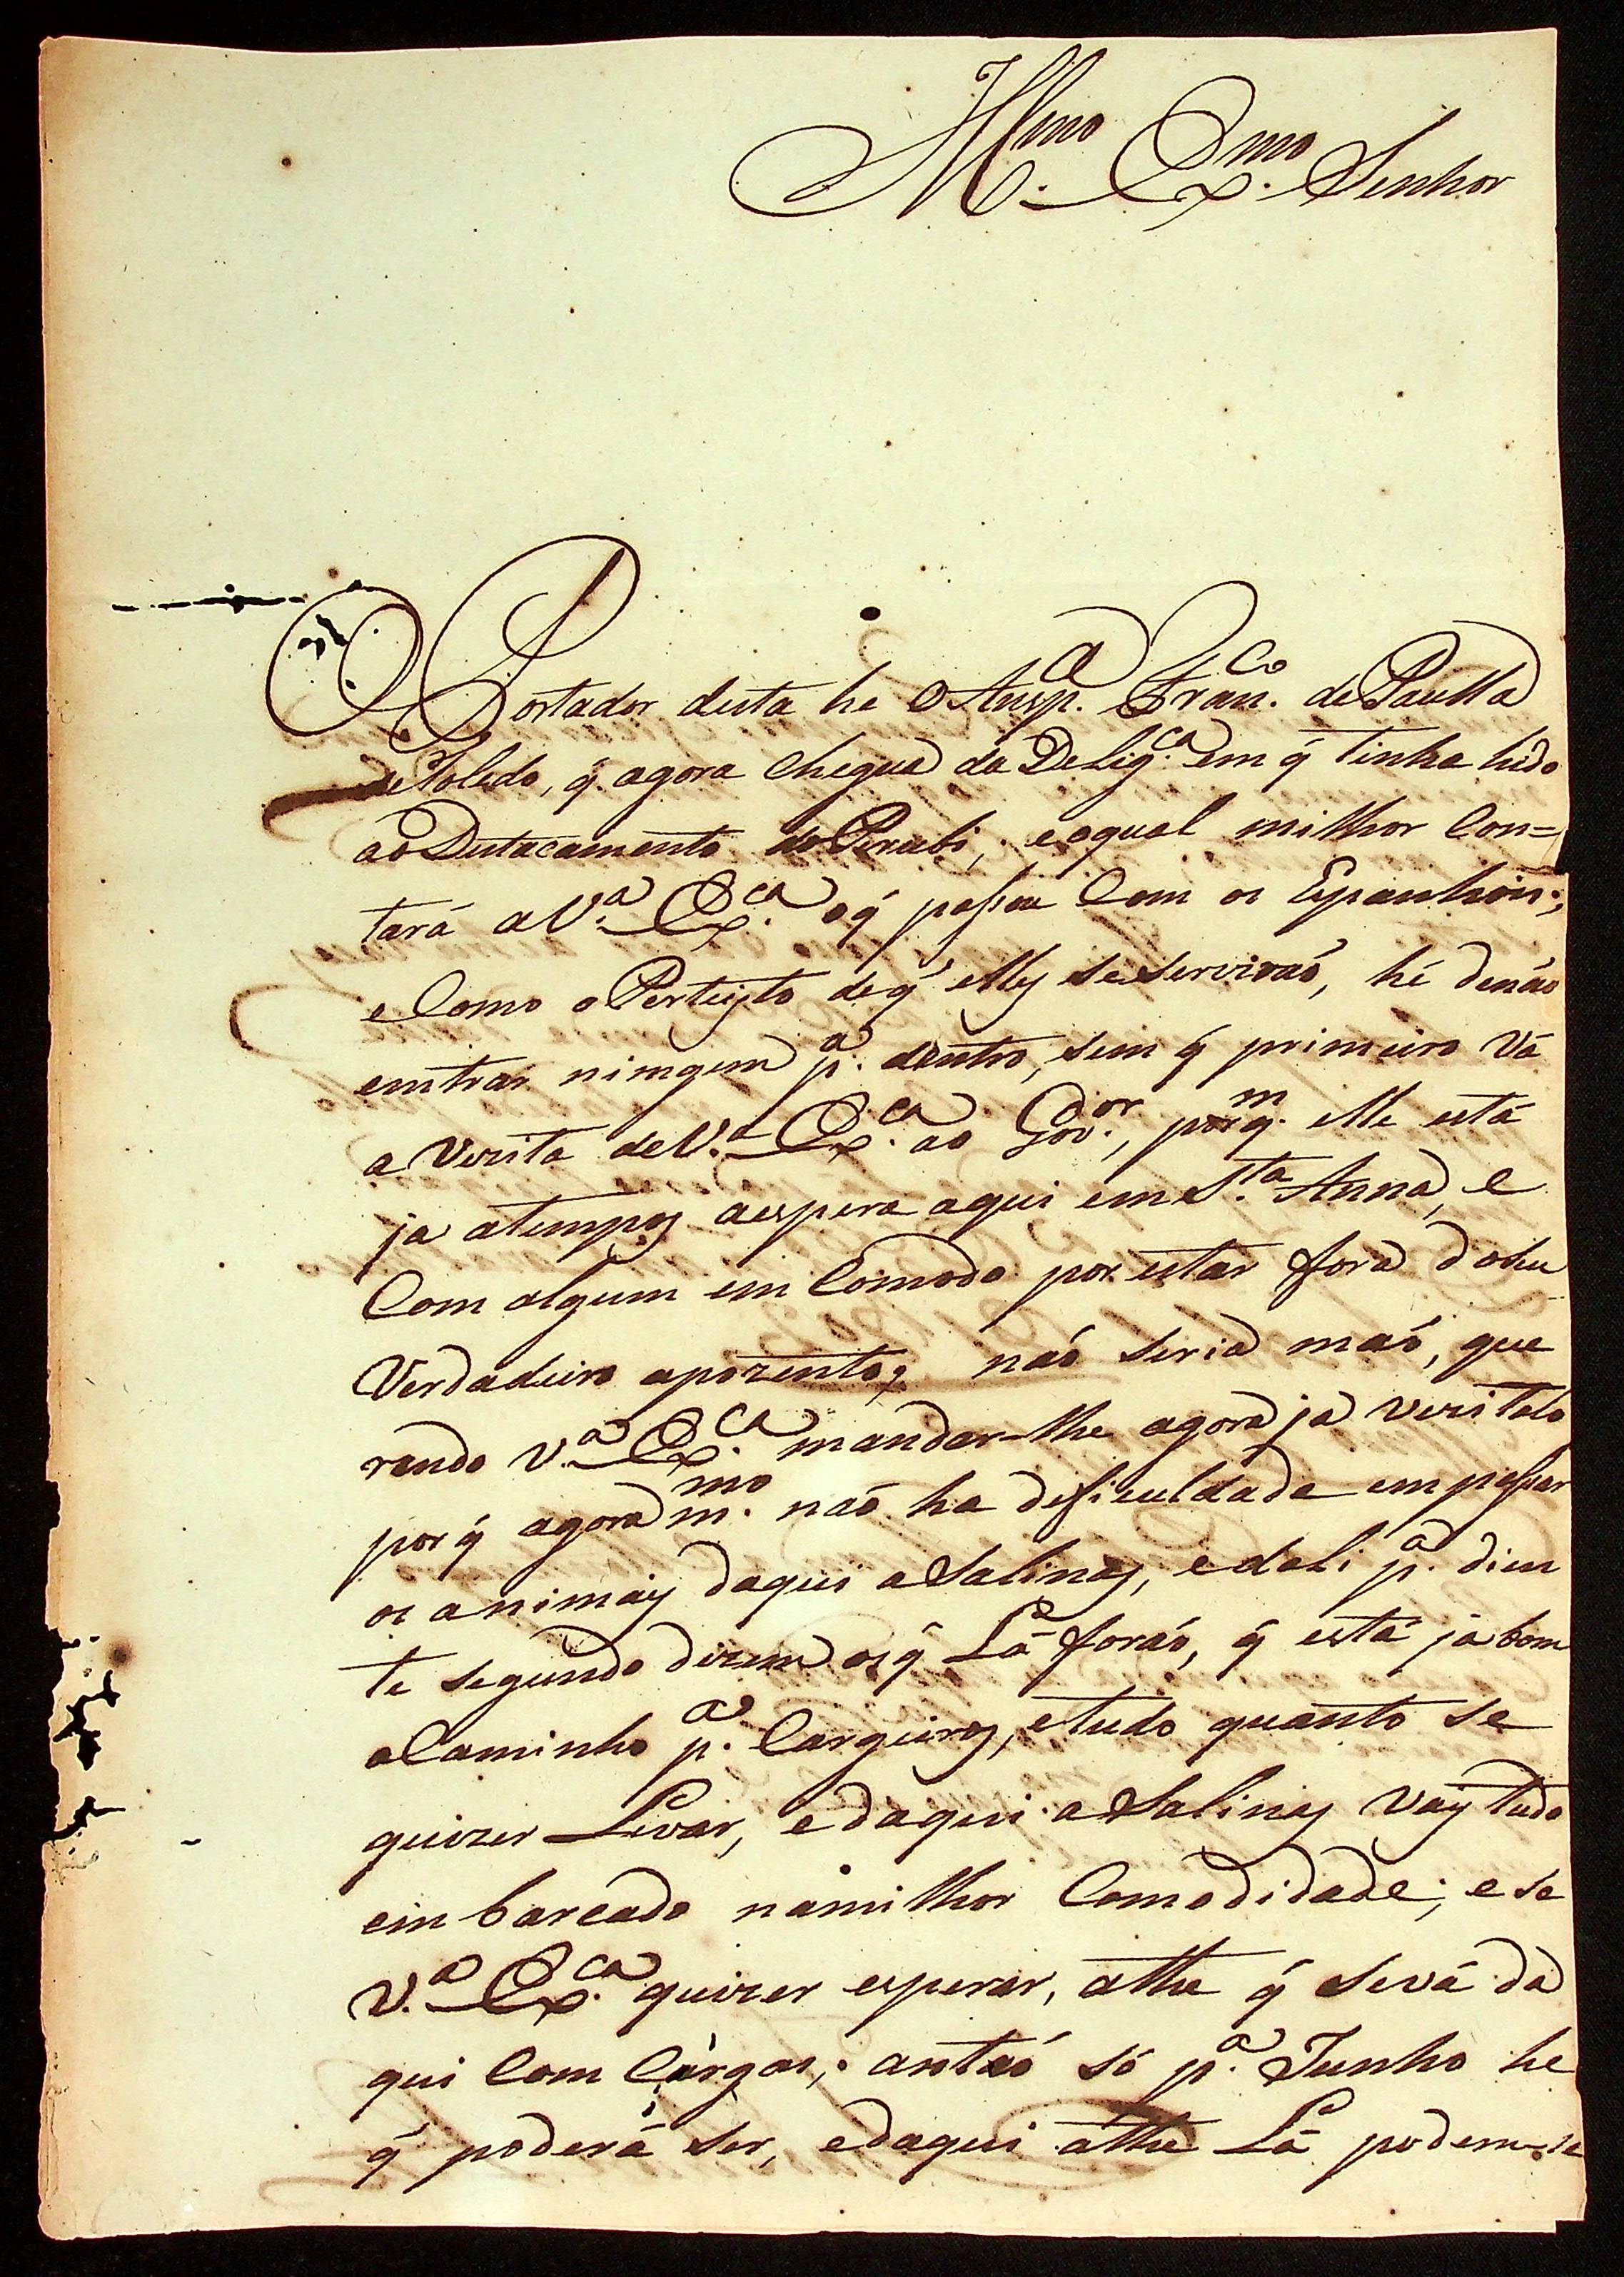 Illmo. Exmo. Senhor
O Portador desta he o Ansp.ª Fran.co de Paulla
de Toledo, q̃ agora chegua da Delig.ca em q̃ tinha hido
ao Destacamento do Perubi, e oqual milhor Con=
tará a V.ª Ex.ca oq̃ passou Com os Espanhois;
e Como o Perteisto deq̃ elles se serviraó, hé denáo
emtrar nimgem p.ª dentro, sem q̃ primeiro Vá
a Vezita de V.ª Ex.ca ao Gov.or, porq.m elle está
ja atempos aespera aqui em S.ta Anna, e
Com algum em Comodo por estar fora doseu
Verdadeiro apozento; náó seria maó, que
rendo V.ª Ex.ca mandar-lhe agora ja vezitalo
por q̃ agora m.mo náó ha deficuldade em passar
os animáis daqui a Salinas, e dali p.ª dien
te segundo dizem os q̃ Lá foráó, q̃ está ja bom
o Caminho p.ª Cargueiros, e tudo quanto se
quizer Levar, e daqui a Salinas Vay tudo
embarcado namilhor Comodidade; e se
V.ª Ex.ca quizer esperar, athe q̃ se vá da
qui Com Cargas; antaó só p.ª Junho he
q̃ poderá ser, e daqui athe Lá podem-se